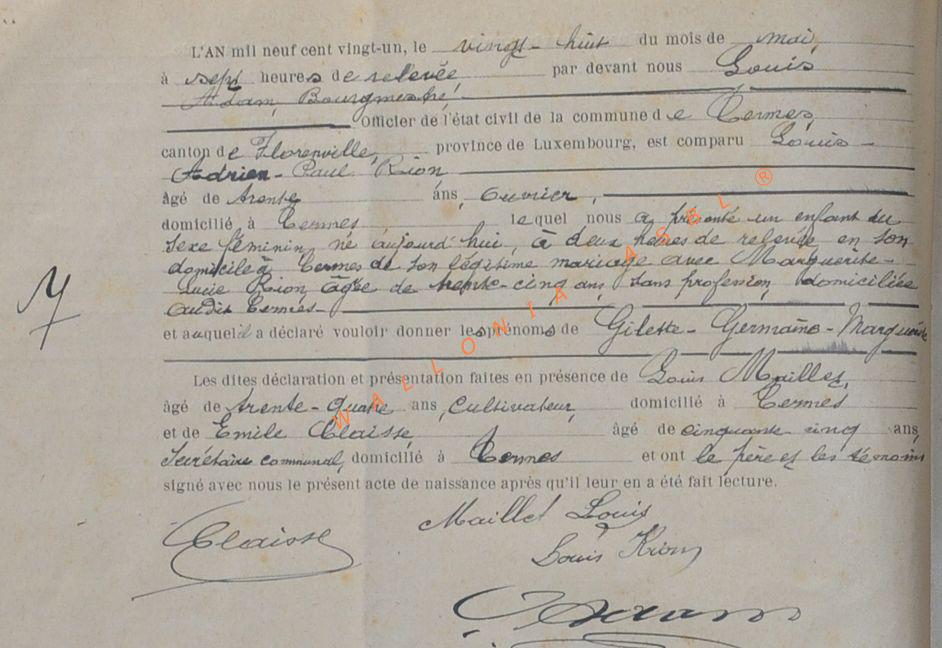 L'AN mil neuf cent vingt-un, le vingt-huit du mois de mai,
à sept heures de relevée par devant nous Louis
Adam, Bourgmestre,
Officier de l'état civil de la commune de Termes,
canton de Florenville, province de Luxembourg, est comparu Louis-
Adrien-Paul Rion
âgé de trente ans, ouvrier,
domicilié à Termes lequel nous a présenté un enfant du
sexe féminin, né aujourd'hui, à deux heures de relevée, en son
domicile à Termes de son légitime mariage avec Marguerite-
Lucie Rion, âgée de trente-cinq ans, sans profession, domiciliée
audit Termes-
et auquel il a déclaré vouloir donner les prénoms de Gilette-Germaine-Marguerite
Les dites déclaration et présentation faites en présence de Louis Maillet,
âgé de trente-quatre ans, cultivateur, domicilié à Termes
et de Emile Claisse, âgé de cinquante-cinq ans,
Secrétaire communal, domicilié à Termes et ont le père et les témoins
signé avec nous le présent acte de naissance après qu'il leur en a été fait lecture.
Maillet Louis
Claisse
Louis Rion
WALLONIA ASBL ®